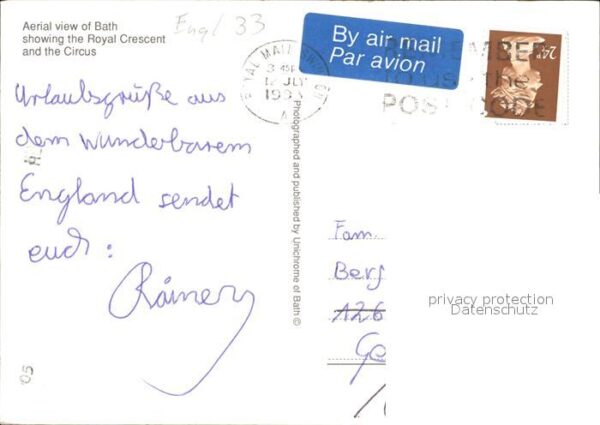 Aerial view of Bath
showing the Royal Crescent
and the Circus
Engl 33
By air mail
Par avion
ROYAL MAIL
12 JLY
REMEMBER
to use the
POST CODE
24P
Urlaubsgrüße aus
dem wunderbarem
England sendet
euch:
Rainer
Photographed and published by Unichrome of Bath ©
Fam.
Berg
126
Ge
privacy protection
Datenschutz
05